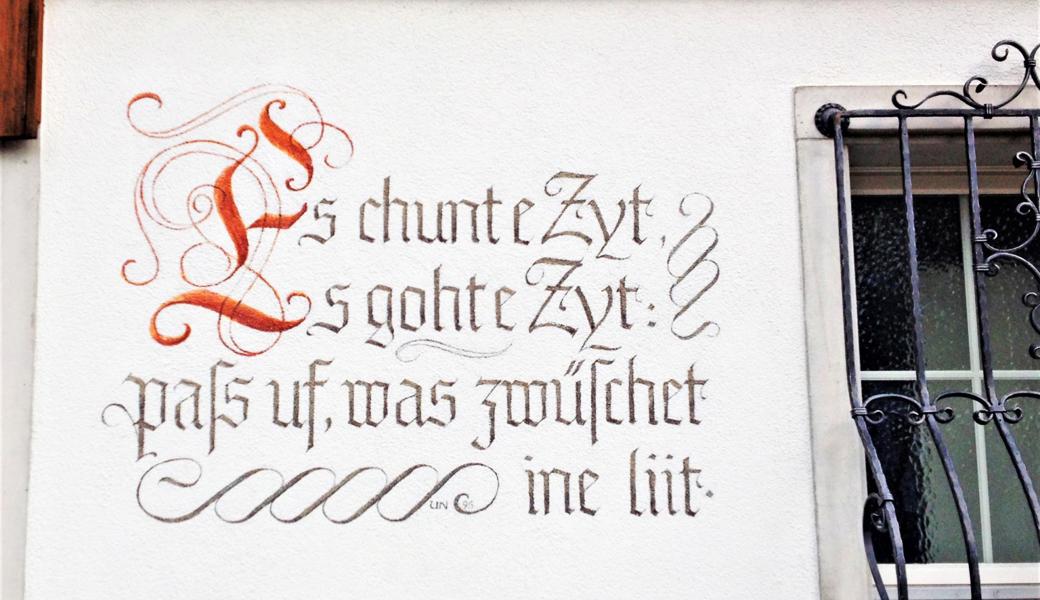 Es chunt e Zyt,
Es goht e Zyt:
paſs uf, was zwüſchet
ine liit.
UN 96